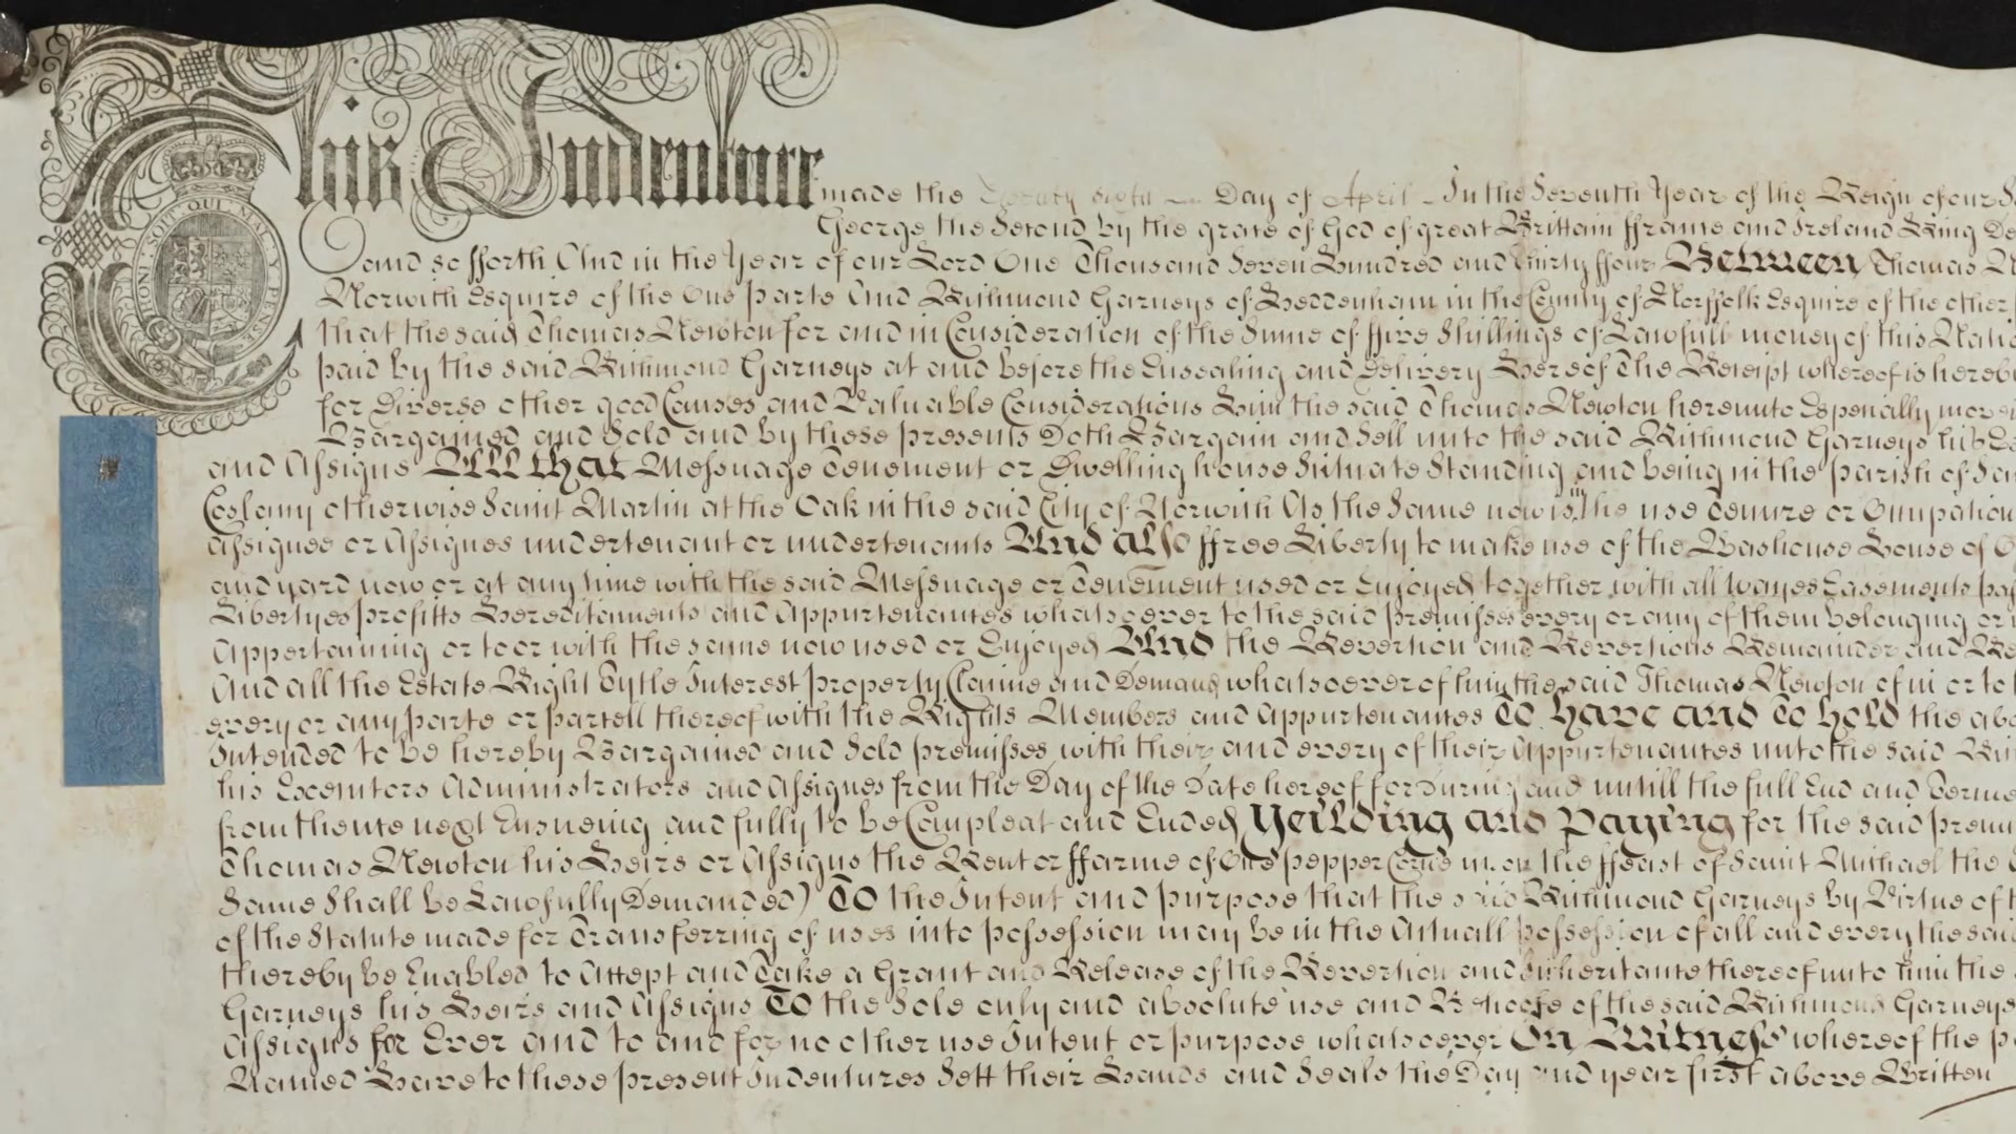 This Indenture made the Twenty sixth Day of April In the Seventh Year of the Reign of our
George the Second by the grace of God of great Brittain ffrance and Ireland King
and so fforth And in the Year of our Lord One Thousand Seven Hundred and Thirty ffour Between Thomas
Norwich Esquire of the One parte And Richmond Garneys of Heddenham in the County of Norffolk Esquire of the other
that the said Thomas Newton for and in Consideration of the Sume of ffive Shillings of Lawfull money of this
paid by the said Richmond Garneys at and before the Ensealing and Delivery Hereof The Receipt whereof is
for Diverse other good Causes and Valuable Considerations Him the said Thomas Newton hereunto Especially
Bargained and Sold and by these presents Doth Bargain and Sell unto the said Richmond Garneys his
and Assigns All that Messuage Tenement or Dwelling house Scituate Standing and being in the parish of
Coslany otherwise Saint Martin at the Oak in the said City of Norwich As the Same now is in the use Tenure or Occupation
Assignee or Assignes undertenant or undertenants And also ffree Liberty to make use of the Washouse House of
and yard now or at any time with the said Messuage or Tenement used or Enjoyed together with all wayes Easements
Libertyes profitts Hereditaments and Appurtenances whatsoever to the said premisses every or any of them belonging or
Appertaining or to or with the same now used or Enjoyed And the Revertion and Revertions Remainder and
And all the Estate Right Tytle Interest property Claime and Demand whatsoever of him the said Thomas Newton of in or to
every or any parte or parcell thereof with the Rights Members and Appurtenances To have and To hold the
Intended to be hereby Bargained and Sold premisses with their and every of their Appurtenances unto the said
his Executors Administrators and Assignes from the Day of the Date hereof for During and untill the full End and Terme
from thence next Ensueing and fully to be Compleat and Ended Yeilding and Paying for the said
Thomas Newton his Heirs or Assigns the Rent or ffarme of One pepper Corne the ffeast of Saint Michael the
Same Shall be Lawfully Demanded) To the Intent and purpose that the said Richmond Garneys by Virtue of
of the Statute made for Transferring of uses into possession may be in the Actuall possession of all and every the
thereby be Enabled to Accept and Take a Grant and Release of the Revertion and Inheritance thereof unto him the
Garneys his Heirs and Assigns To the Sole only and absolute use and Behoofe of the said Richmond Garneys
Assigns for Ever and to and for no other use Intent or purpose whatsoever In Witness whereof the
Named Have to these present Indentures Sett their Hands and Seals the Day and year first above Written